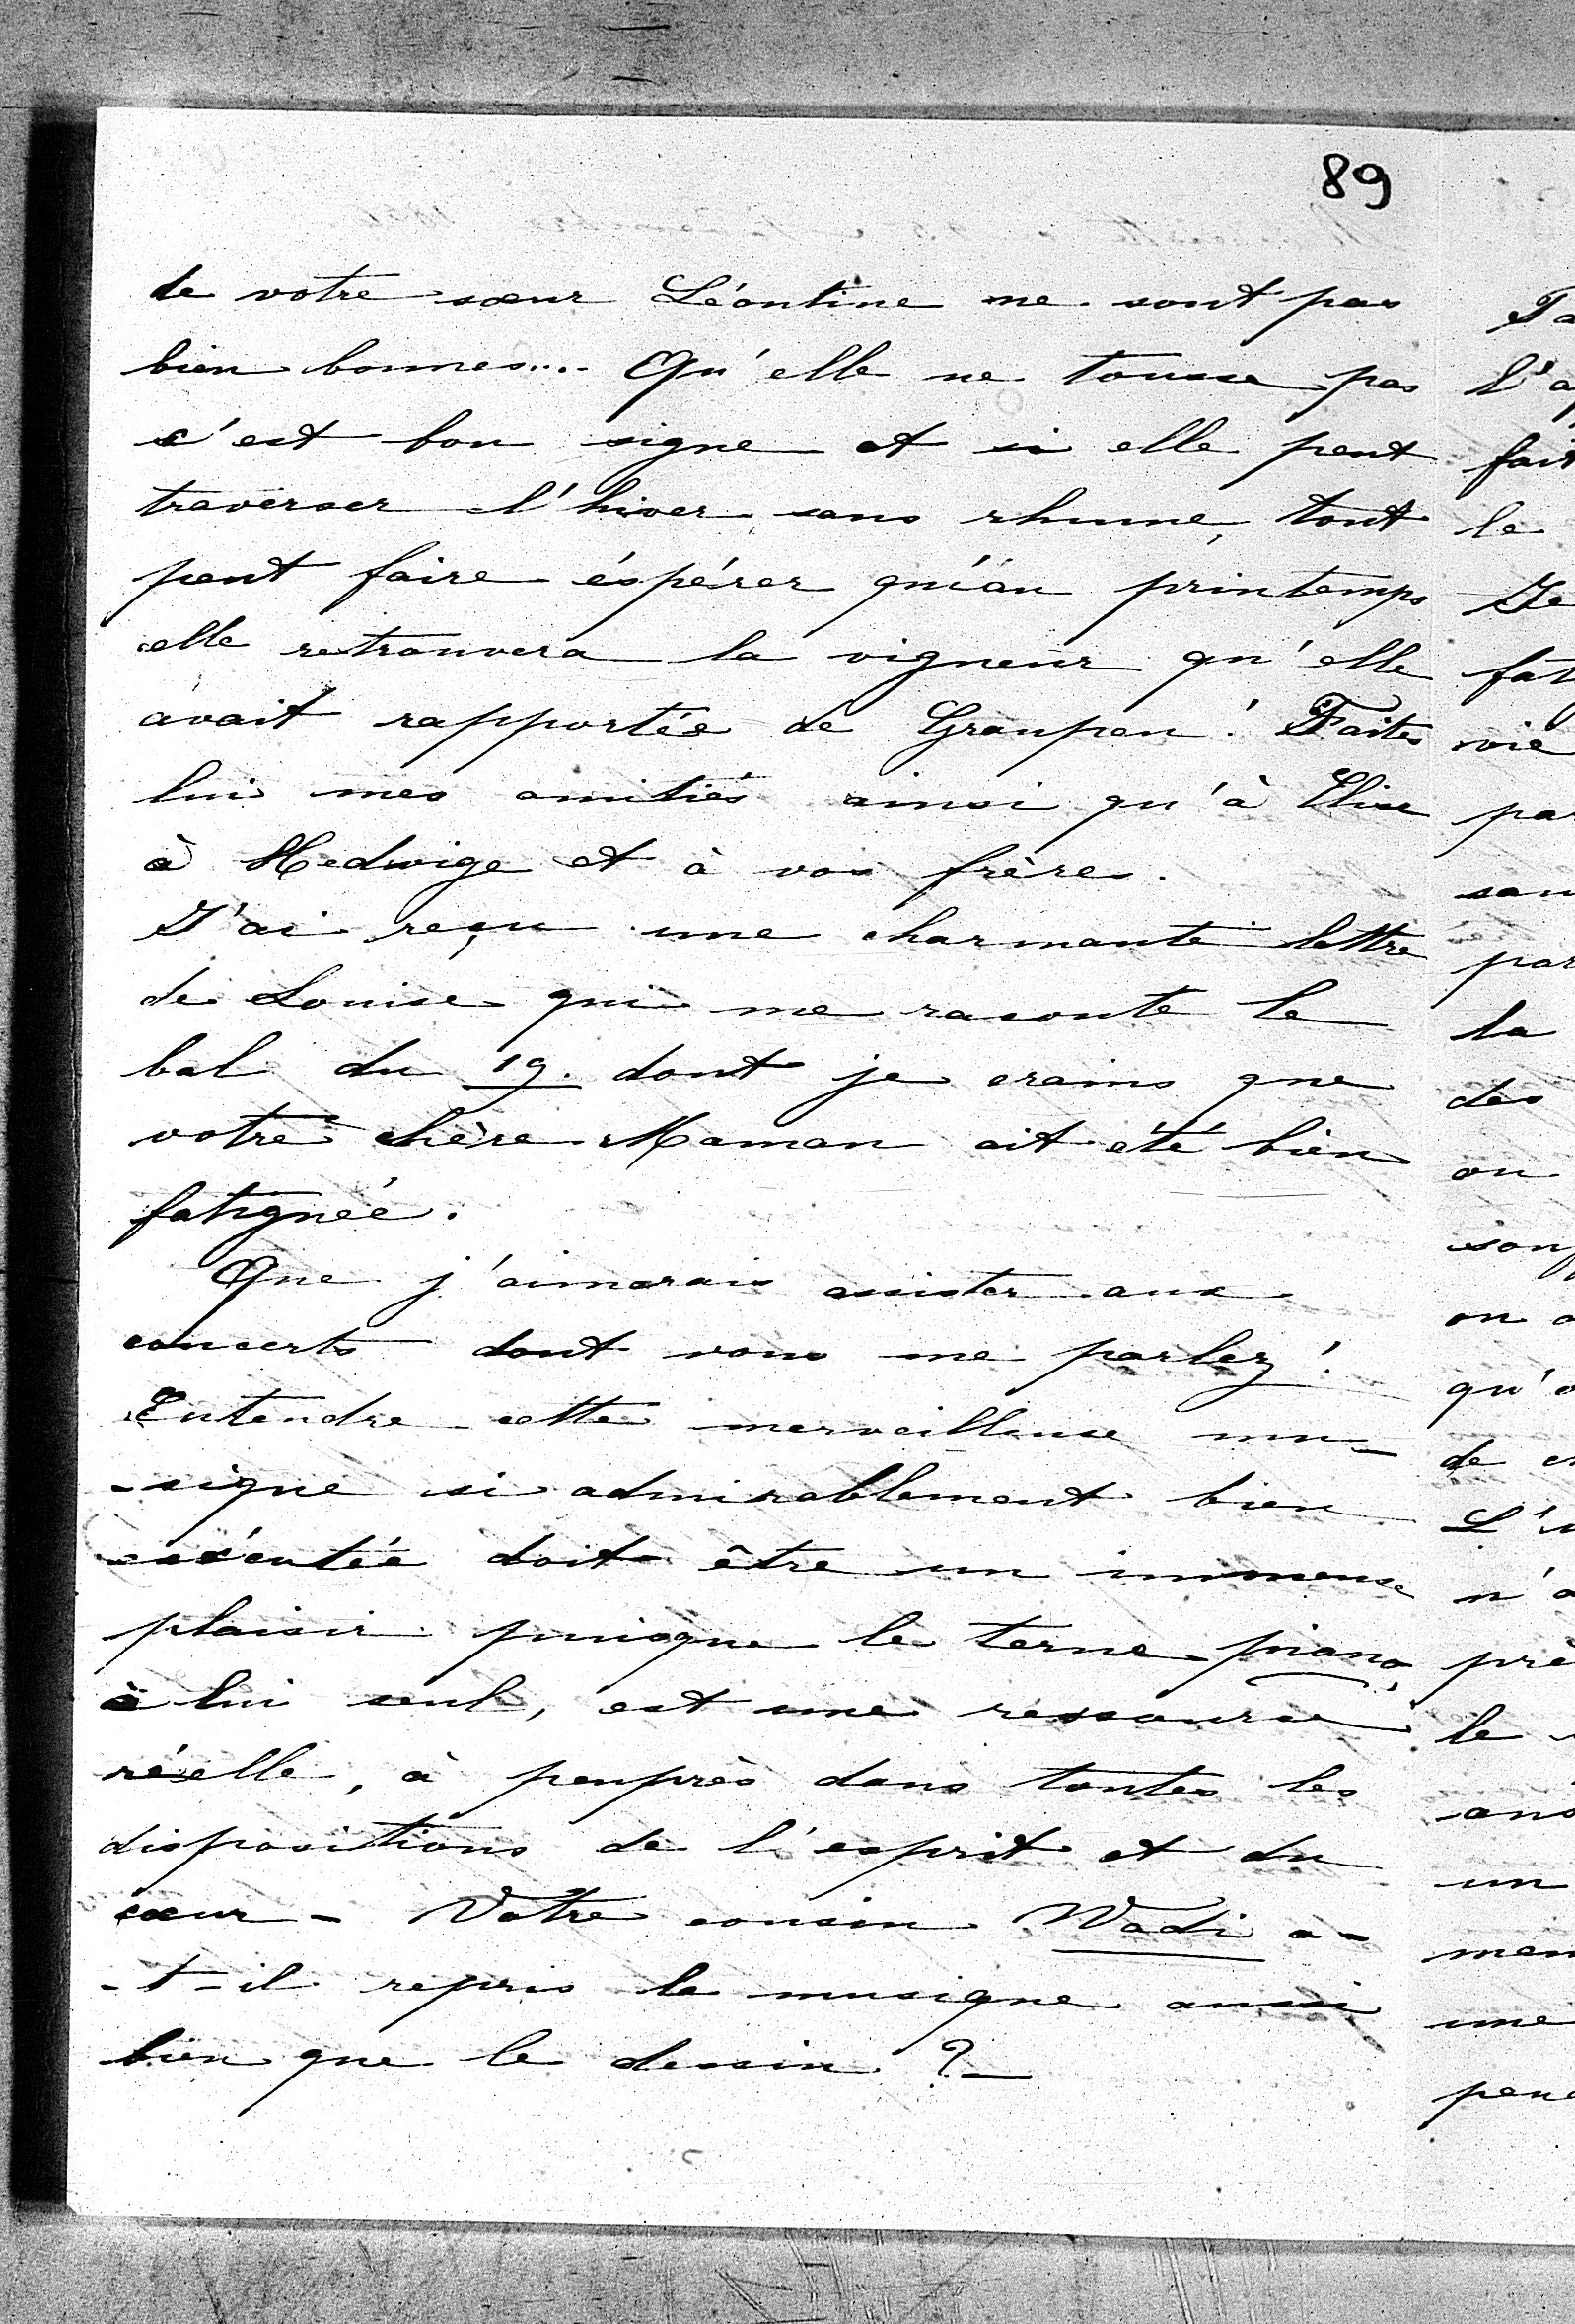 89
de votre sœur Léontine ne sont pas
bien bonnes.... Qu'elle ne tousse pas
c'est bon signe et si elle peut
traverser l'hiver sans rhume, tout
peut faire éspérer qu'au printemps
elle retrouvera la vigueur qu'elle
avait rapportée de Graupen! Faites
lui mes amitiés ainsi qu'à Elise
à Hedwige et à vos frères.
J'ai reçu une charmante lettre
de Louise qui me raconte le
bal du 19. dont je crains que
votre chère Maman ait été bien
fatiguée.
Que j'aimerais assister aux
concerts dont vous me parlez!
Entendre cette merveilleuse mu-
-sique si admirablement bien
exécutée doit être un immense
plaisir puisque le terne piano,
à lui seul, est une ressource
réelle, à peuprès dans toutes les
dispositions de l'esprit et du
cœur - Votre cousin Wadi a-
-t-il repris la musique aussi
bien que le dessin ?-